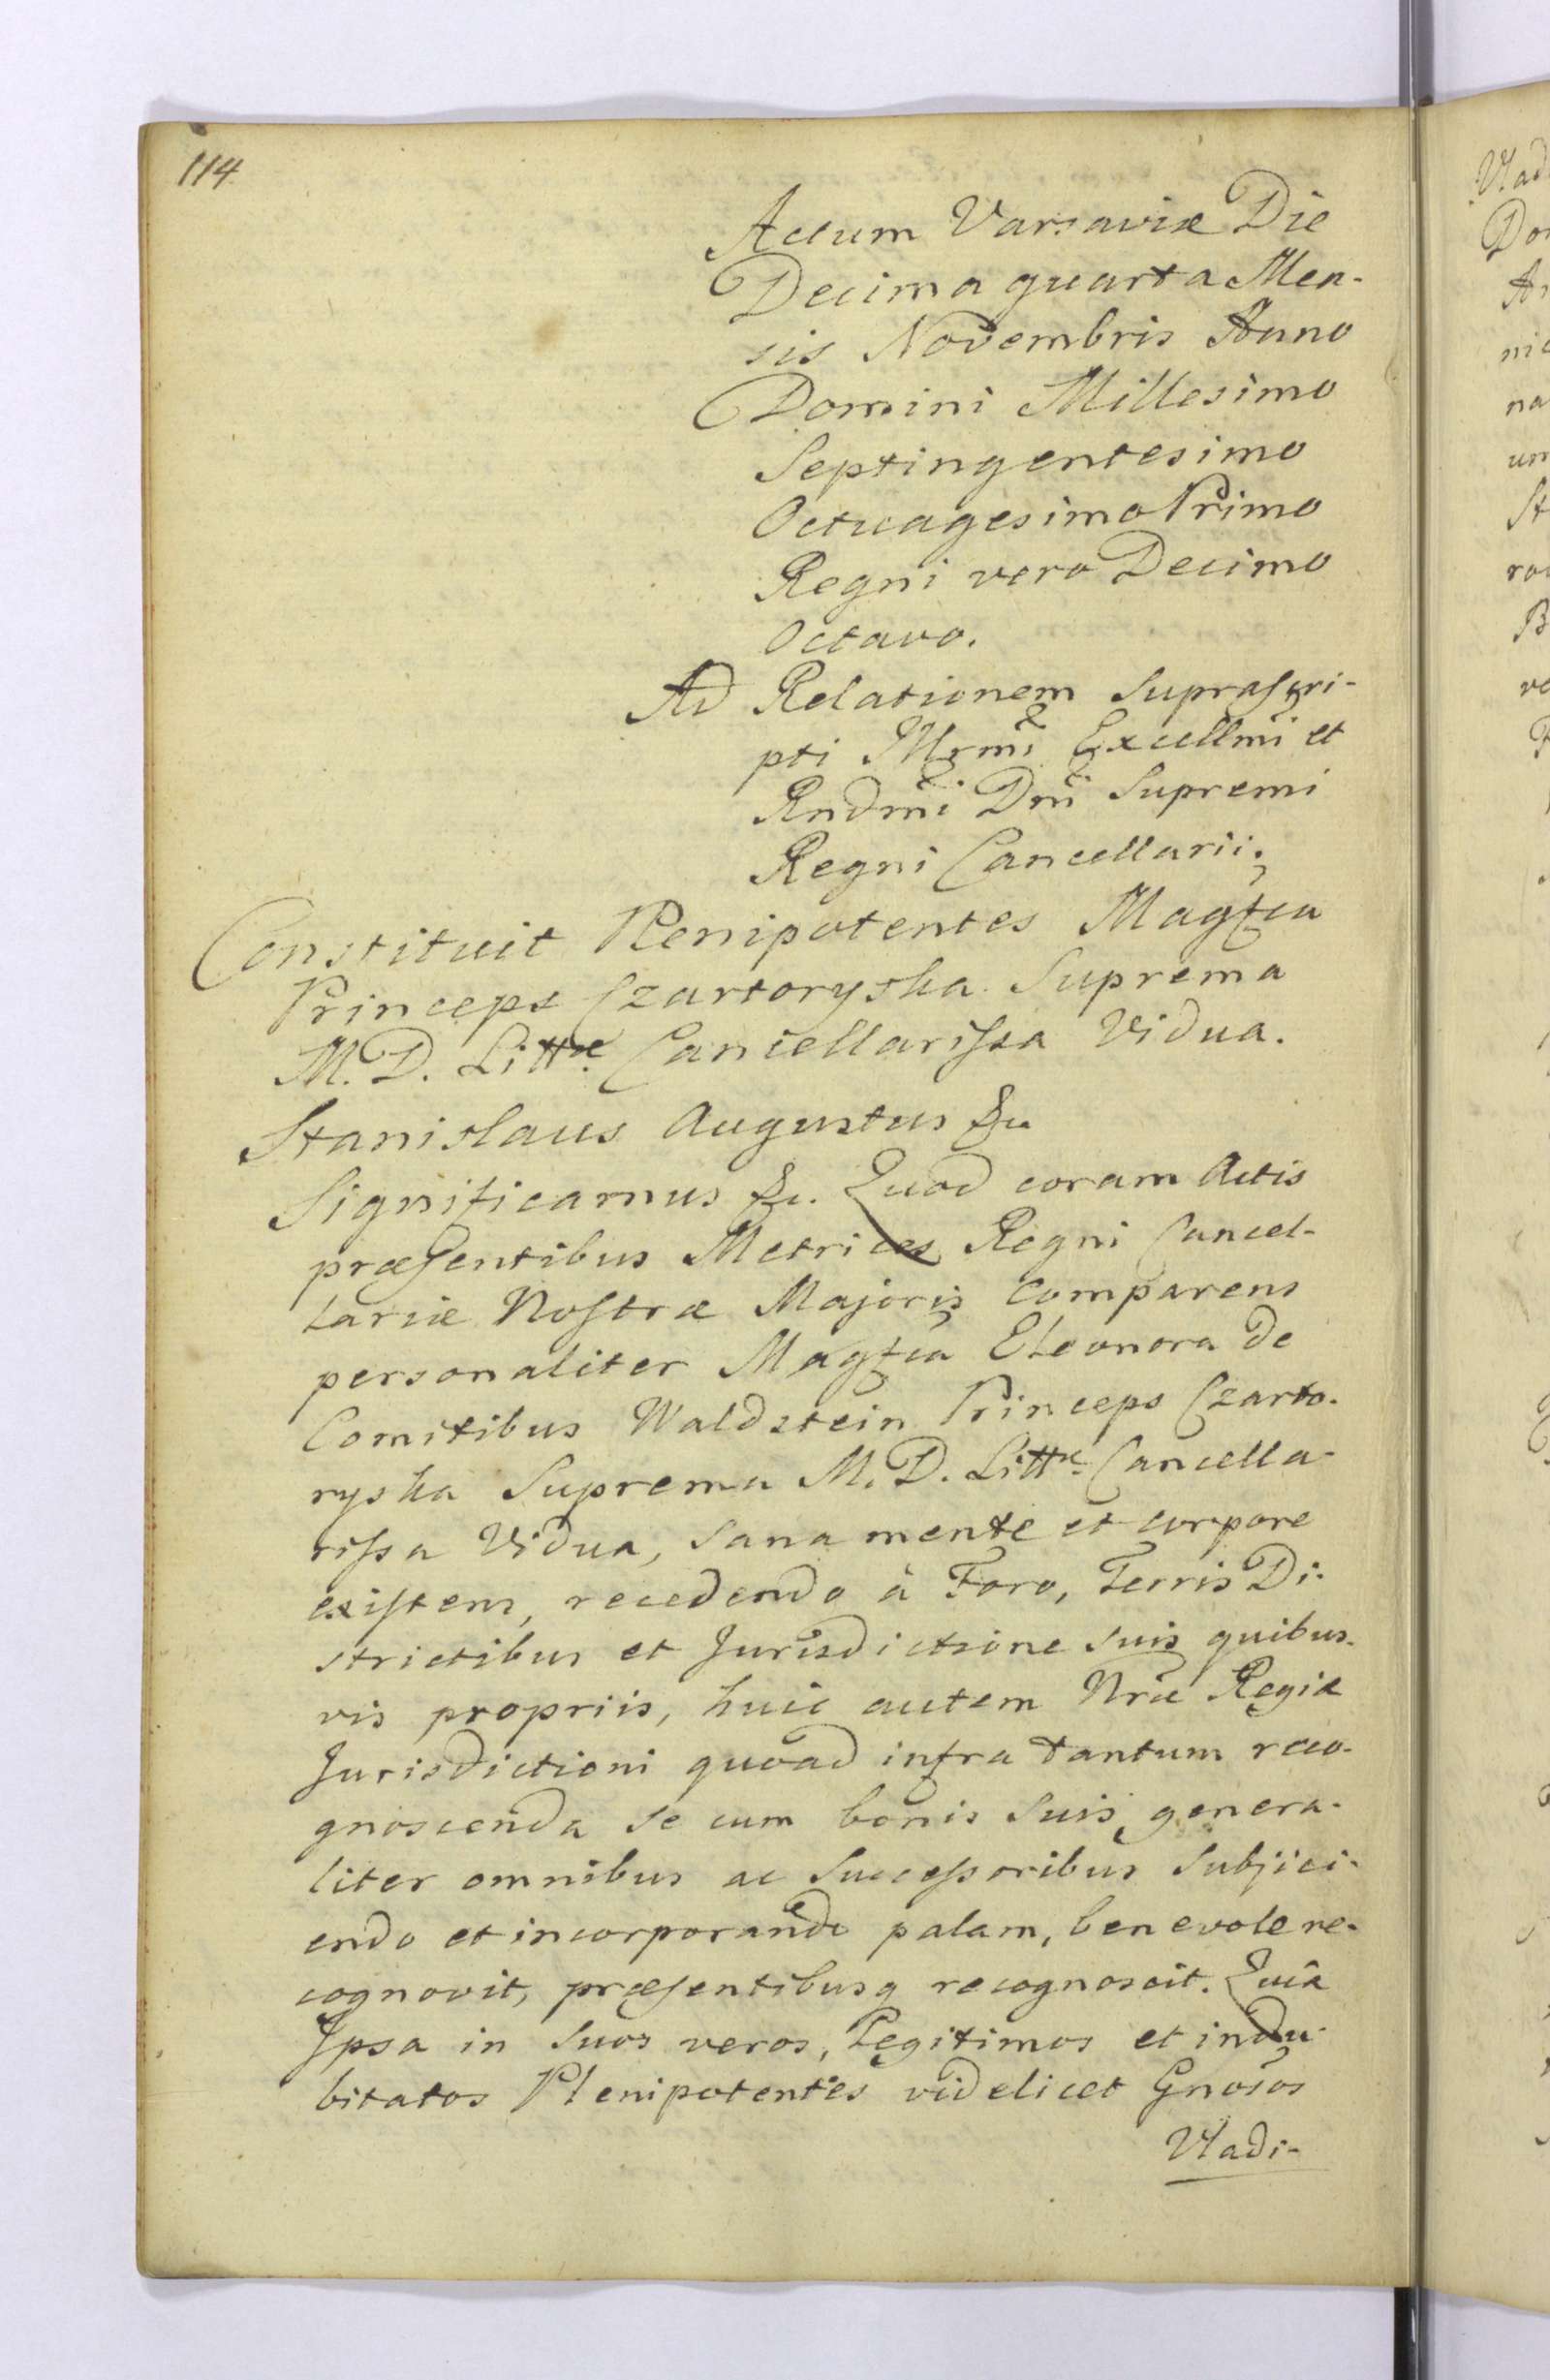 114
Actum Varsaviæ Die
Decima quarta Men-
sis Novembris Anno
Domini Millesimo
Septingentesimo
Octuagesimo Primo
Regni vero Decimo
Octavo.
Ad Relationem Suprascri-
pti Illrmi Excellmi et
Rndmi Dni Supremi
Regni Cancellarii.
Constituit Plenipotentes Magfca
Princeps Czartoryska Suprema
M. D. Littæ Cancellarissa Vidua.
Stanislaus Augustus &c
Significamus &c. Quod coram Actis
præsentibus Metrices Regni Cancel-
lariæ Nostræ Majoris comparens
personaliter Magfca Eleonora de
Comitibus Waldstein Princeps Czarto-
ryska Suprema M. D. Littæ Cancella-
rissa Vidua, sana mente et corpore
existens, recedendo à Foro, Terris Di-
strictibus et Jurisdictione suis quibus-
vis propriis, huic autem Nræ Regiæ
Jurisdictioni quoad infra tantum reco-
gnoscenda se cum bonis suis genera-
liter omnibus ac Successoribus subjici-
endo et incorporando palam, benevole re-
cognovit, præsentibusq recognoscit. Quia
Ipsa in suos veros, Legitimos et indu-
bitatos Plenipotentes videlicet Gnosos
Vladi-
Vlad
Do